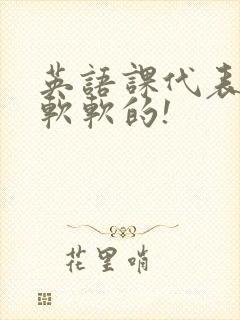 英語課代表
軟軟的!
花里哨